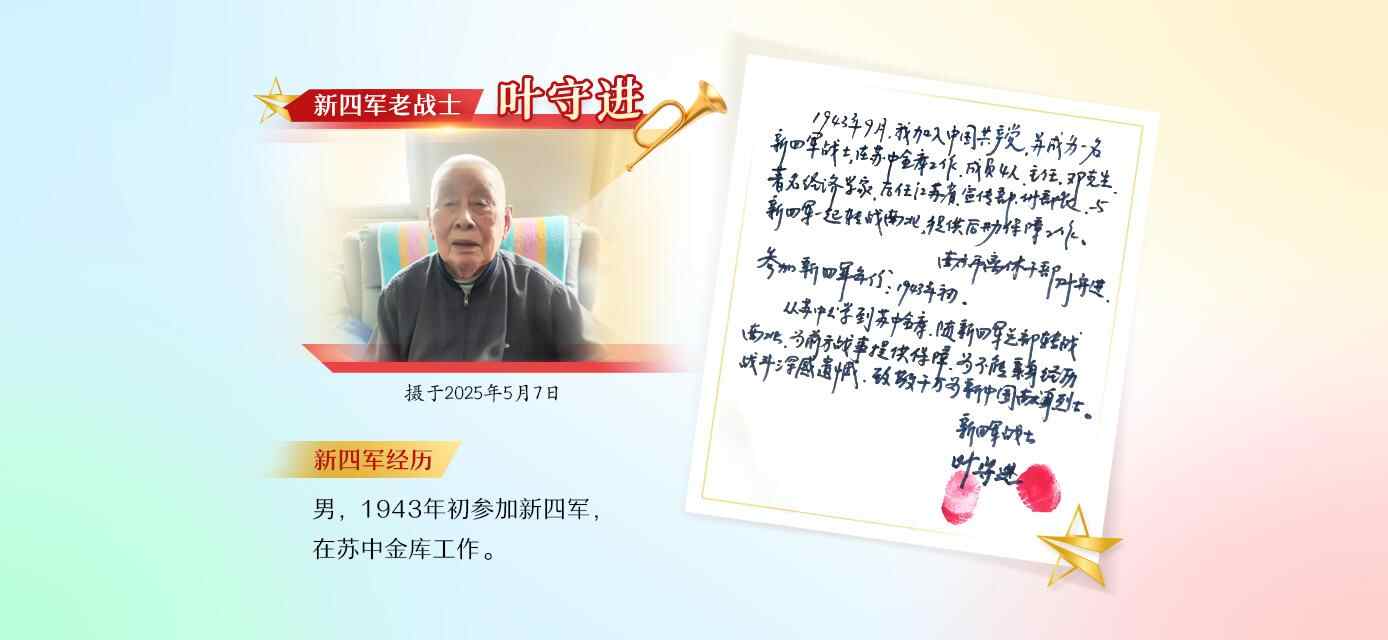 新四军老战士
叶守进
摄于2025年5月7日
新四军经历
男，1943年初参加新四军，
在苏中金库工作。
1943年9月，我加入中国共产党，并成为一名
新四军战士，在苏中金库工作，成员4人，主任，邓克生，
著名经济学家，后任江苏省宣传部，付部长，与
新四军一起转战南北，提供后勤保障工作。
南京市离休干部叶守进.
参加新四军年份：1943年初.
从苏中公学到苏中金库，随新四军总部转战
南北，为前方战事提供保障，为不能亲身经历
战斗深感遗憾，致敬千万为新中国献身烈士。
新四军战士
叶守进